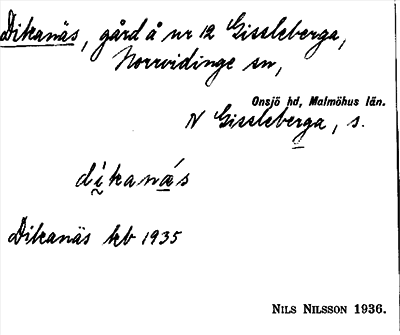 Dikanäs, gård å nr 12 Gissleberga,
Norrvidinge sn,
Onsjö hd, Malmöhus län.
N Gissleberga, s.
dikanás
Dikanäs kb 1935
NILS NILSSON 1936.